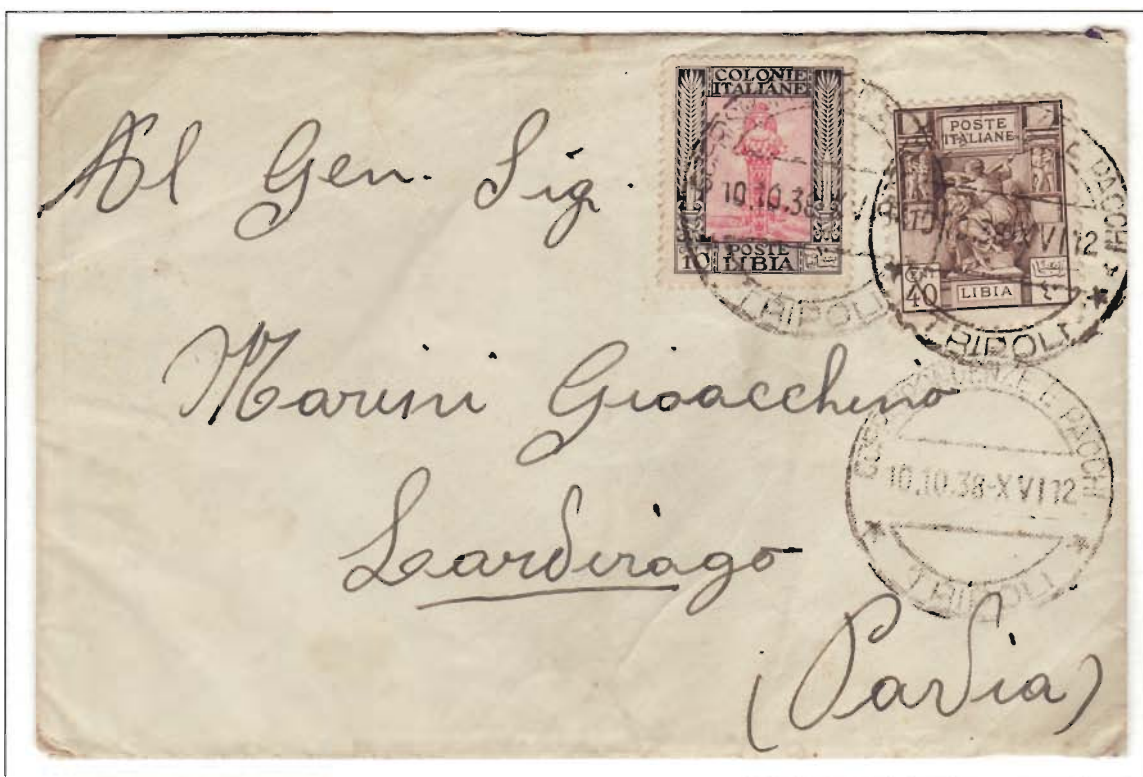 Al Gen. Sig.
Marini Gioacchino
Lardirago
(Pavia)
COLONIE
ITALIANE
10 POSTE
LIBIA
10.10.38-XVI
TRIPOLI
POSTE
ITALIANE
CENT
40
LIBIA
XVI 12
E PACCHI
TRIPOLI
CORRISPONDENZE E PACCHI
10.10.38-XVI 12
TRIPOLI